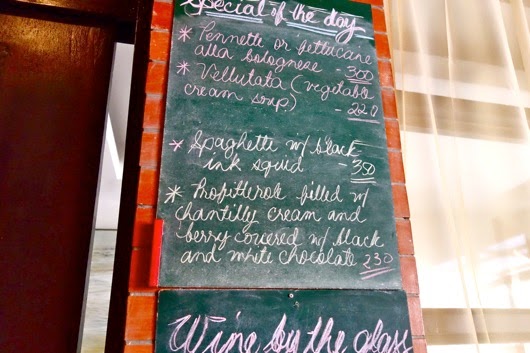 Special of the day
* Pennette or fettucine
alla bolognese - 300
* Vellutata (vegetable
cream soup) - 220
* Spaghetti w/ black
ink squid - 350
* Profitterole filled w/
chantilly cream and
berry covered w/ black
and white chocolate 230
Wine by the glass